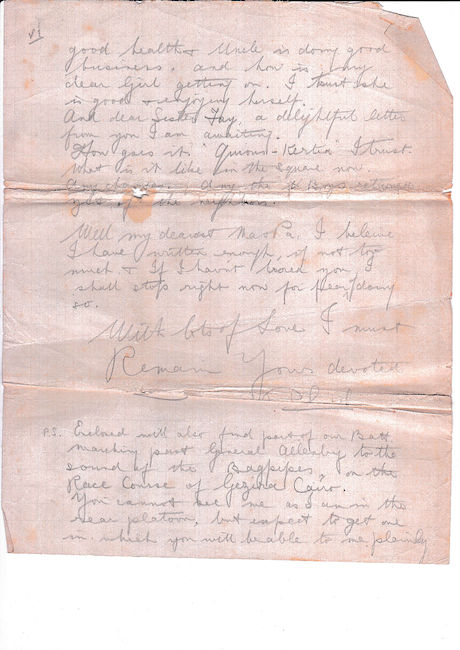 VI
good health & Uncle is doing good
business. and how is my
dear Girl getting on. I trust she
is good & enjoying herself.
And dear Sister Fay, a delightful letter
from you I am awaiting.
How goes it, I trust.
What is it like in the square now.
Any changes. Any the Boys returned
yet of the neighbors.
Well my dearest Ma & Pa, I believe
I have written enough, if not too
much & If I havn't bored you I
shall stop right now for fear of doing
so.
With lots of Love I must
Remain Yours devoted
P.S. Enclosed will also find part of our Batt.
marching past General Allenby to the
sound of the Bagpipes, on the
Race Course of Gezira Cairo.
You cannot see me as I am in the
rear platoon, but expect to get one
in which you will be able to me plainly